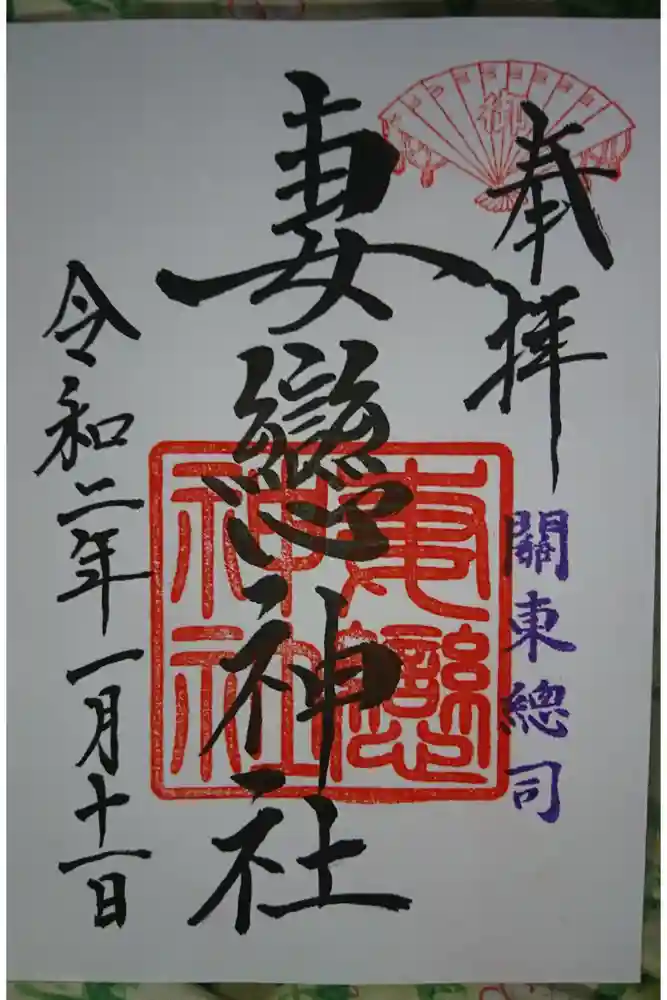 奉拝
御
關東總司
妻戀神社
妻戀神社
令和二年一月十一日